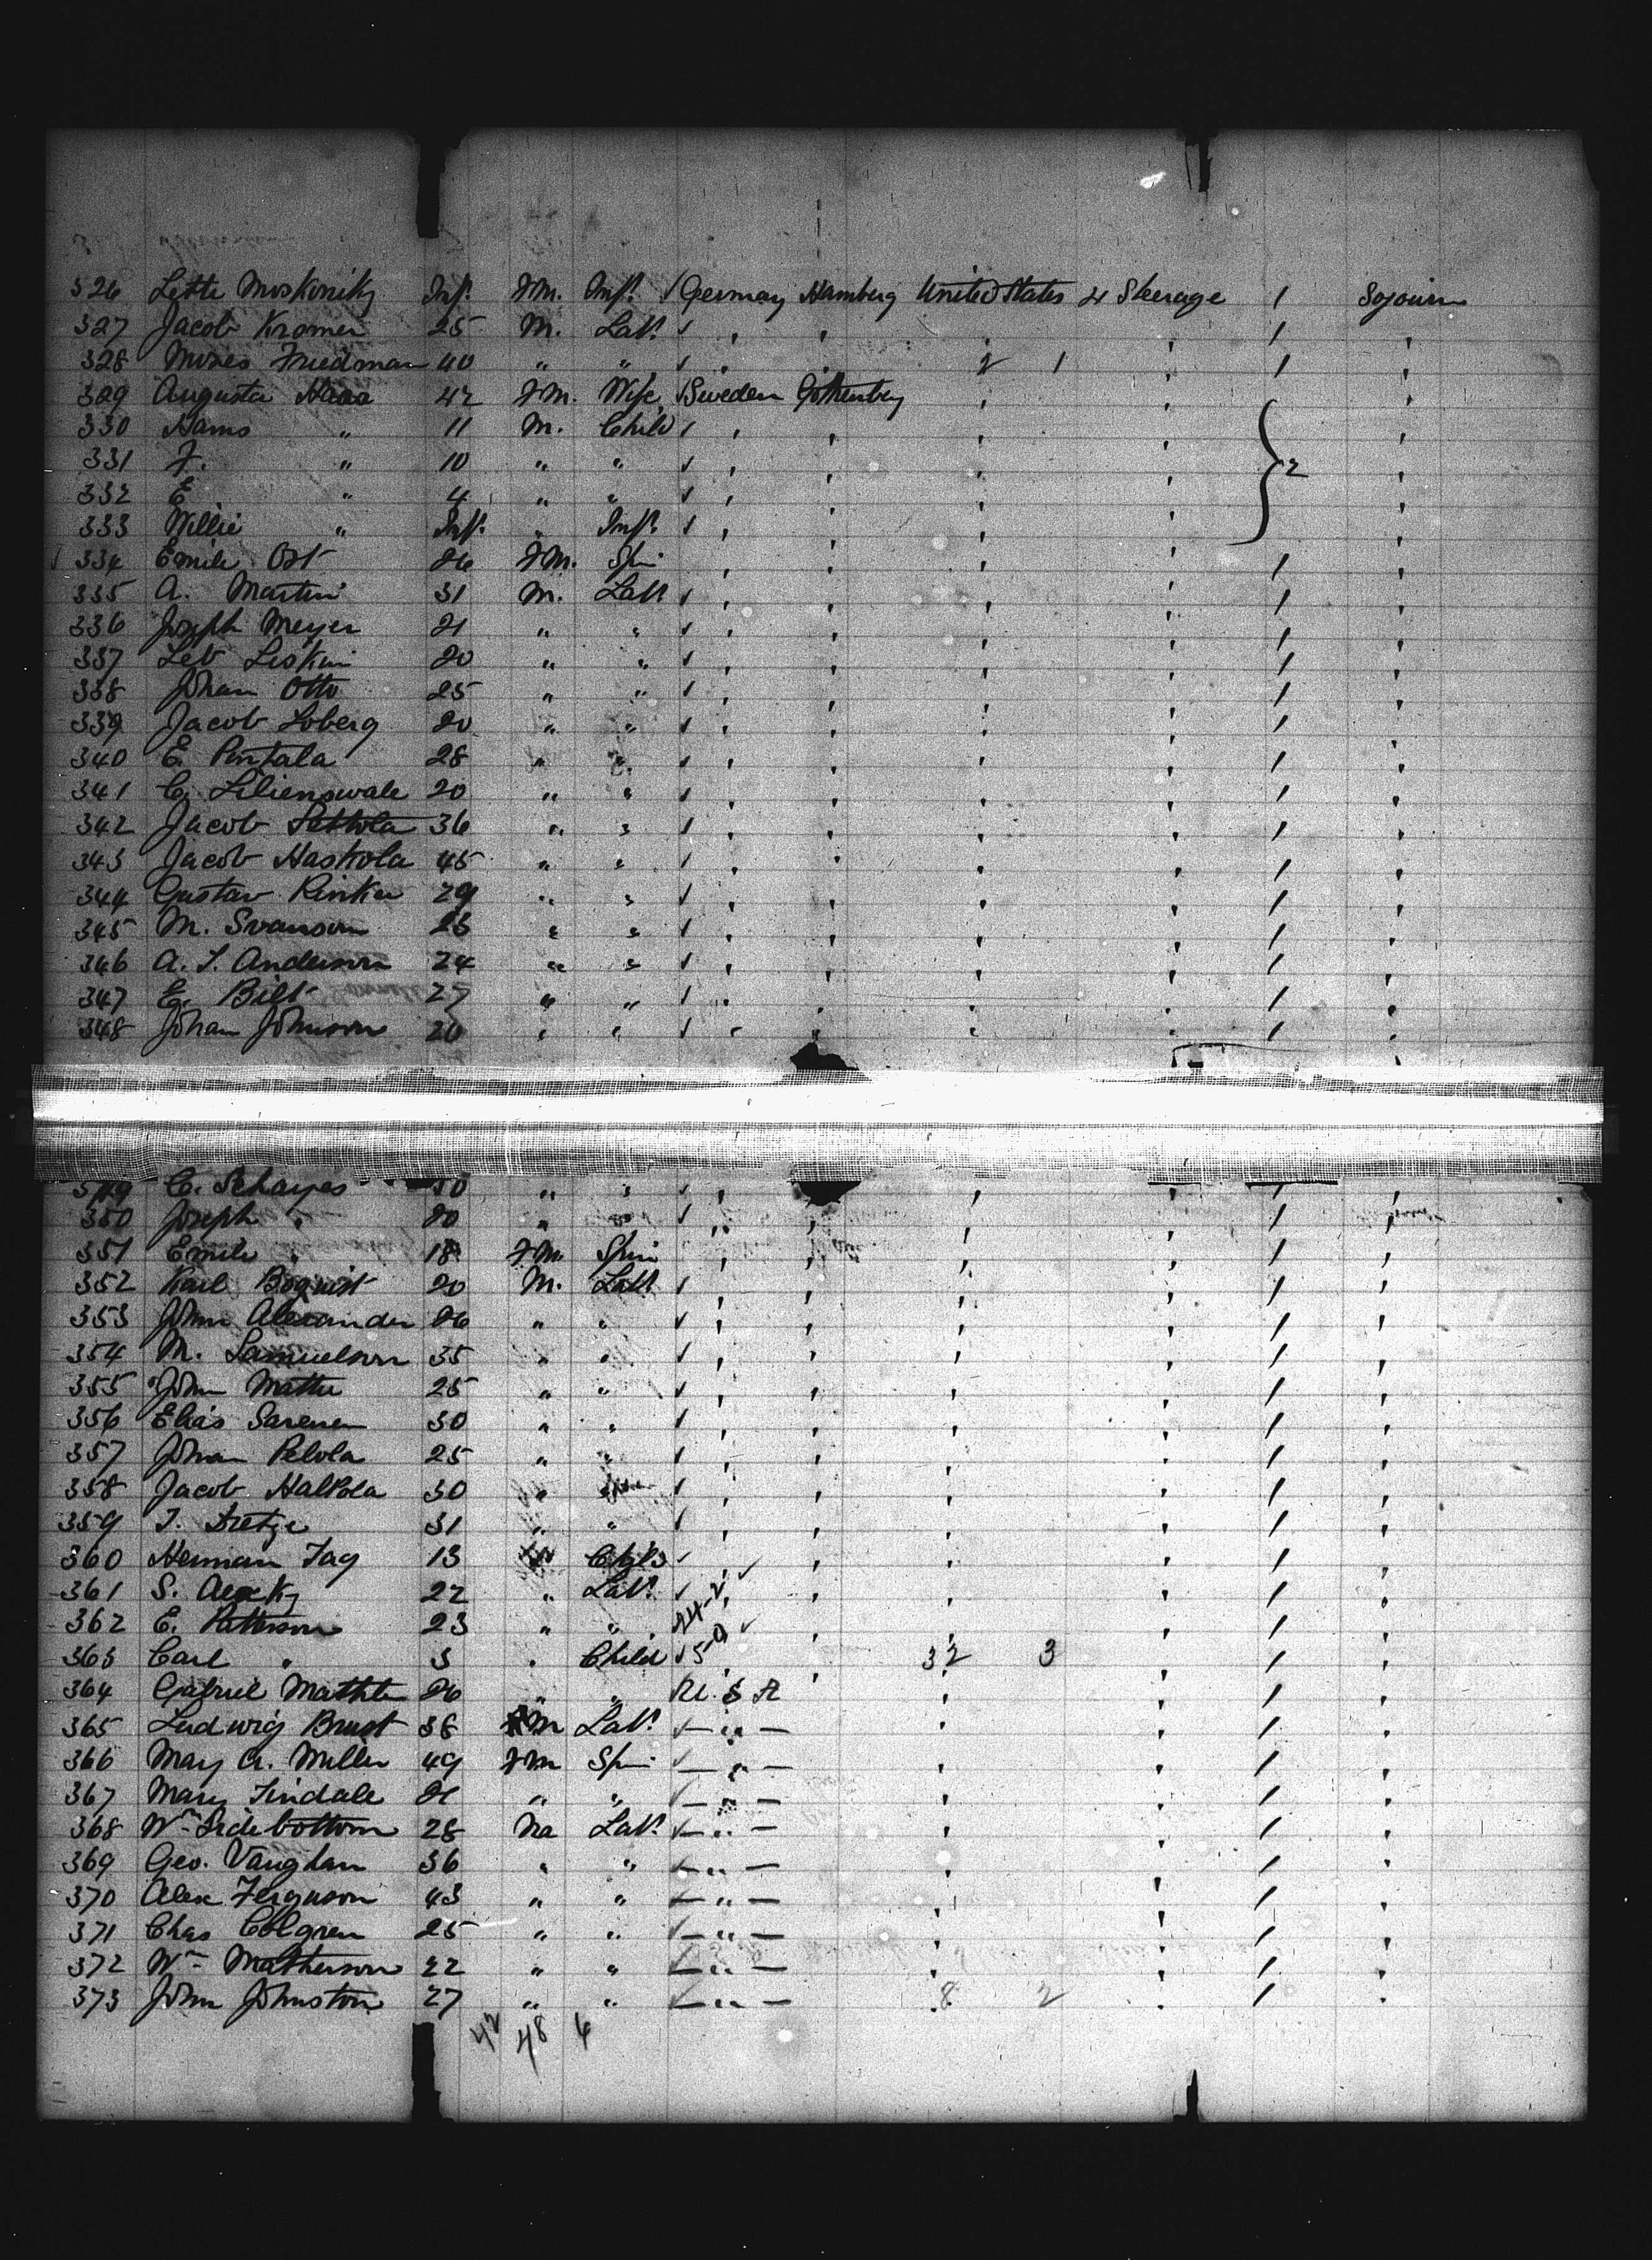 326 Lette Moskovitz Inf. Fm. Inf. ✓ Germany Hamberg United States 4 Steerage / Sojourn
327 Jacob Kromer 25 M. Labr ✓ , , / ,
328 Moses Friedman 40 " " ✓ , , 2 1 , / ,
329 Augusta Haas 42 Fm. Wife ✓ Sweden Gothenberg , , ,
330 Hans " 11 M. Child ✓ , , , , ,
331 F. " 10 " " ✓ , , , , } 2 ,
332 E " 4 " " ✓ , , , , ,
333 Willie " Inf. " Inf. ✓ , , , , ,
334 Emile Ost 26 Fm. Spin , , , / ,
335 A. Martin 31 M. Labr ✓ , , , , / ,
336 Joseph Meyer 21 " " ✓ , , , , / ,
337 Leb Liskin 20 " " ✓ , , , , / ,
338 Johan Otto 25 " " ✓ , , , , / ,
339 Jacob Loberg 20 " " ✓ , , , , / ,
340 E. Pintala 28 " " ✓ , , , , / ,
341 C. Lilienswale 20 " " ✓ , , , , / ,
342 Jacob 36 " " ✓ , , , , / ,
343 Jacob Haskola 45 " " ✓ , , , , / ,
344 Gustav Rinken 29 " " ✓ , , , , / ,
345 M. Svanson 23 " " ✓ , , , , / ,
346 A. J. Anderson 24 " " ✓ , , , , / ,
347 E. Bilt 27 " " ✓ , , , , / ,
348 Johan Johnson 26 " " ✓ , , , , / ,
349 C. Schayes " " ✓ , , , / ,
350 Joseph " 20 " ✓ , , , , / ,
351 Emile 18 Fm. Spin , , , , / ,
352 Karl Boquist 20 M. Labr ✓ , , , , / ,
353 John Alexander 26 " " ✓ , , , , / ,
354 M. Samuelson 35 " " ✓ , , , , / ,
355 John Matte 25 " " ✓ , , , , / ,
356 Elias Sarenen 30 " " ✓ , , , , / ,
357 Johan Pelola 25 " " ✓ , , , , / ,
358 Jacob 30 " ✓ , , , , / ,
359 J. Dietze 31 " " ✓ , , , , / ,
360 Herman Tag 13 " ✓ , , ✓ , , / ,
361 S. 22 " Labr ✓ , , , , / ,
362 E. Patterson 23 " " 24- ✓ , , , / ,
363 Carl " 3 " Child ✓ 5- , 32 3 , / ,
364 Gabriel 26 " " U. S A , , / ,
365 Ludwig Brust 38 M Labr ✓ — " — , , / ,
366 Mary A. Miller 49 Fm Spin ✓ — " — , , / ,
367 Mary Tindale " " ✓ — " — , , / ,
368 Wm Sidebottom 28 Ma Labr ✓ — " — , , / ,
369 Geo. Vaughan 36 " " ✓ — " — , , / ,
370 Alex Ferguson 43 " " — " — , , / ,
371 Chas Colgren 25 " " ✓ — " — , , / ,
372 Wm Matherson 22 " " ✓ — " — , , / ,
373 John Johnston 27 " " ✓ — " — 8 2 , / ,
42 48 6